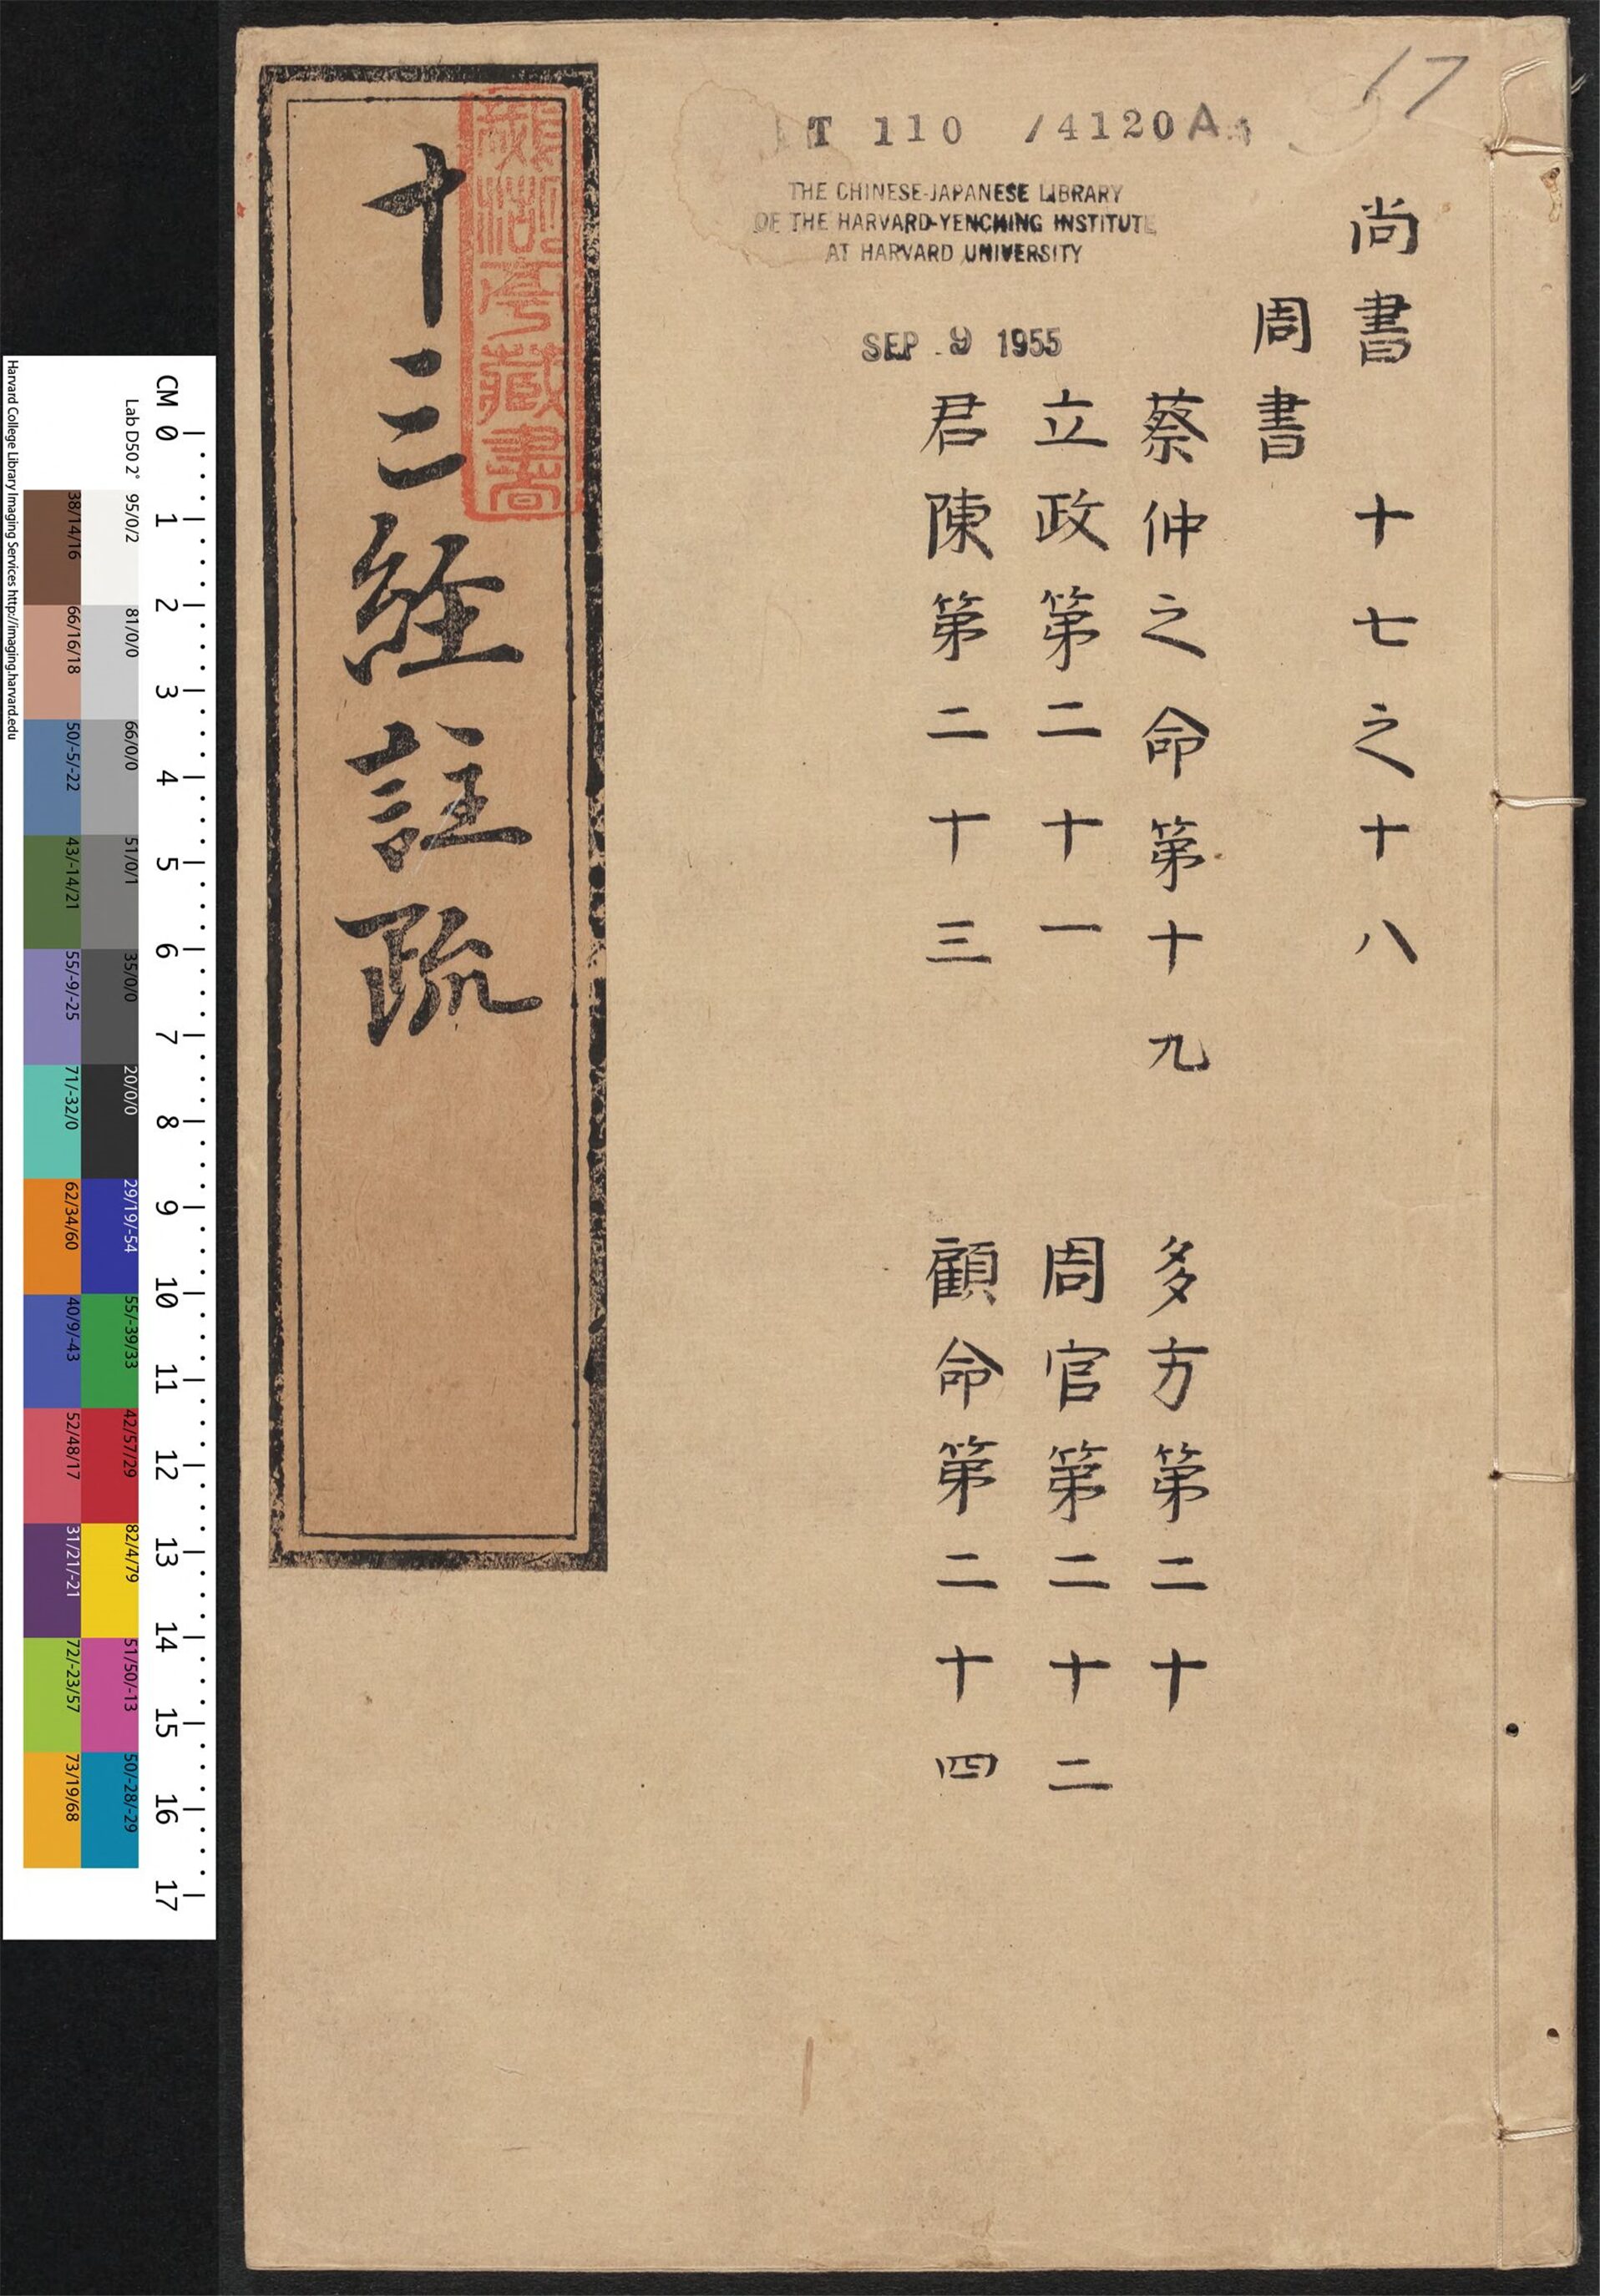 17
T 110 /4120A
THE CHINESE-JAPANESE LIBRARY
OF THE HARVARD-YENCHING INSTITUTE
AT HARVARD UNIVERSITY
SEP 9 1955
尚書 十七之十八
周書
蔡仲之命第十九 多方第二十
立政第二十一 周官第二十二
君陳第二十三 顧命第二十四
十三経註疏
藏書
CM 0 1 2 3 4 5 6 7 8 9 10 11 12 13 14 15 16 17
Lab D50 2°
95/0/2 81/0/0 66/0/0 51/0/1 35/0/0 20/0/0 29/19/-54 55/-39/33 42/57/29 82/4/79 51/50/-13 50/-28/-29
38/14/16 66/16/18 50/-5/-22 43/-14/21 55/-9/-25 71/-32/0 62/34/60 40/9/-43 52/48/17 31/21/-21 72/-23/57 73/19/68
Harvard College Library Imaging Services http://imaging.harvard.edu